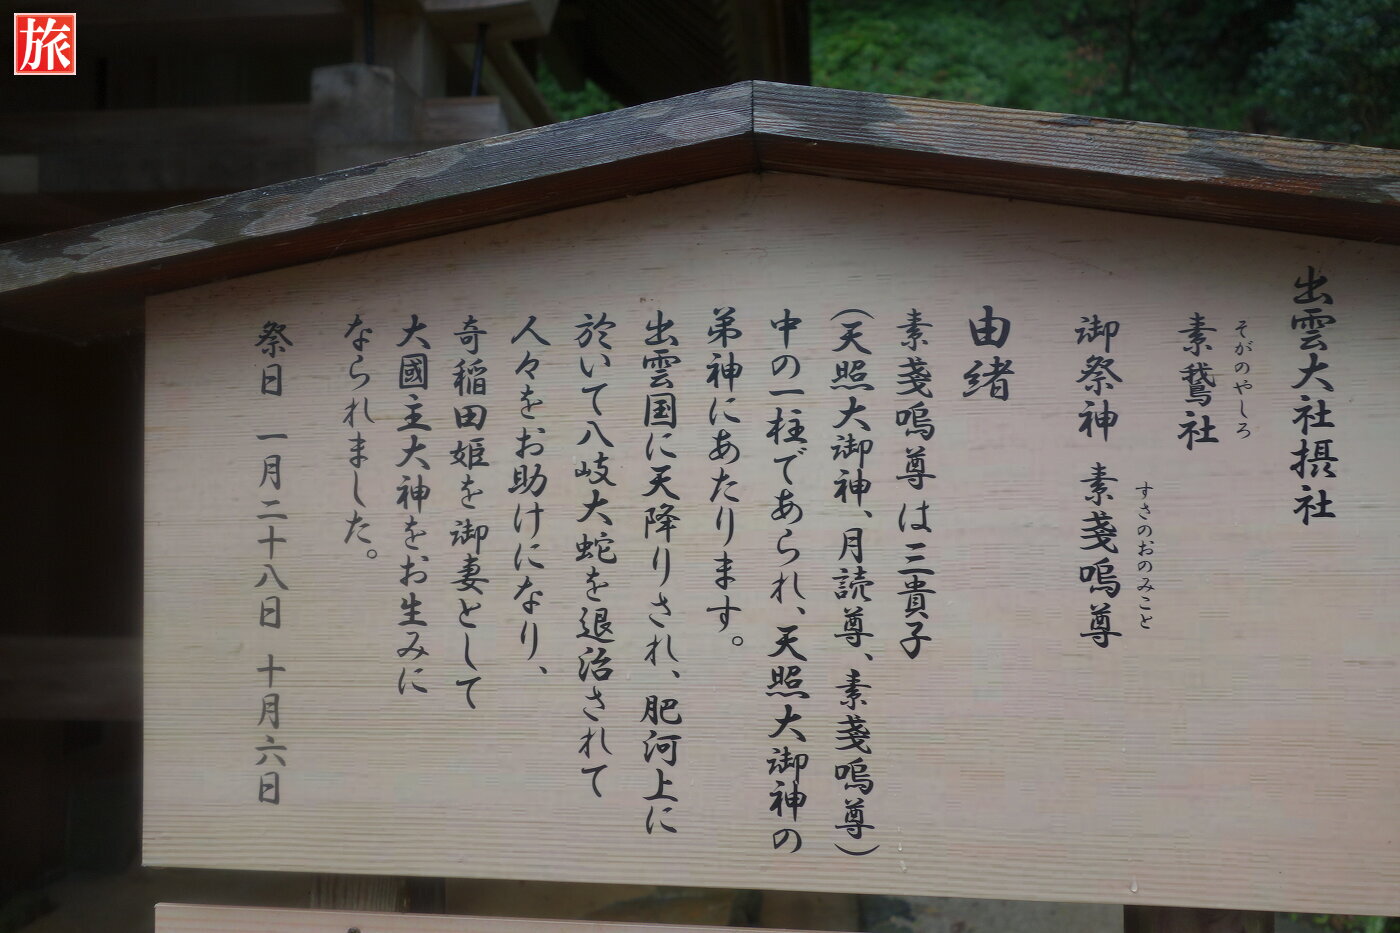 旅
出雲大社摂社
そがのやしろ
素鵞社
すさのおのみこと
御祭神 素戔嗚尊
由緒
素戔嗚尊は三貴子
(天照大御神、月読尊、素戔嗚尊)
中の一柱であられ、天照大御神の
弟神にあたります。
出雲国に天降りされ、肥河上に
於いて八岐大蛇を退治されて
人々をお助けになり、
奇稲田姫を御妻として
大國主大神をお生みに
なられました。
祭日 一月二十八日 十月六日